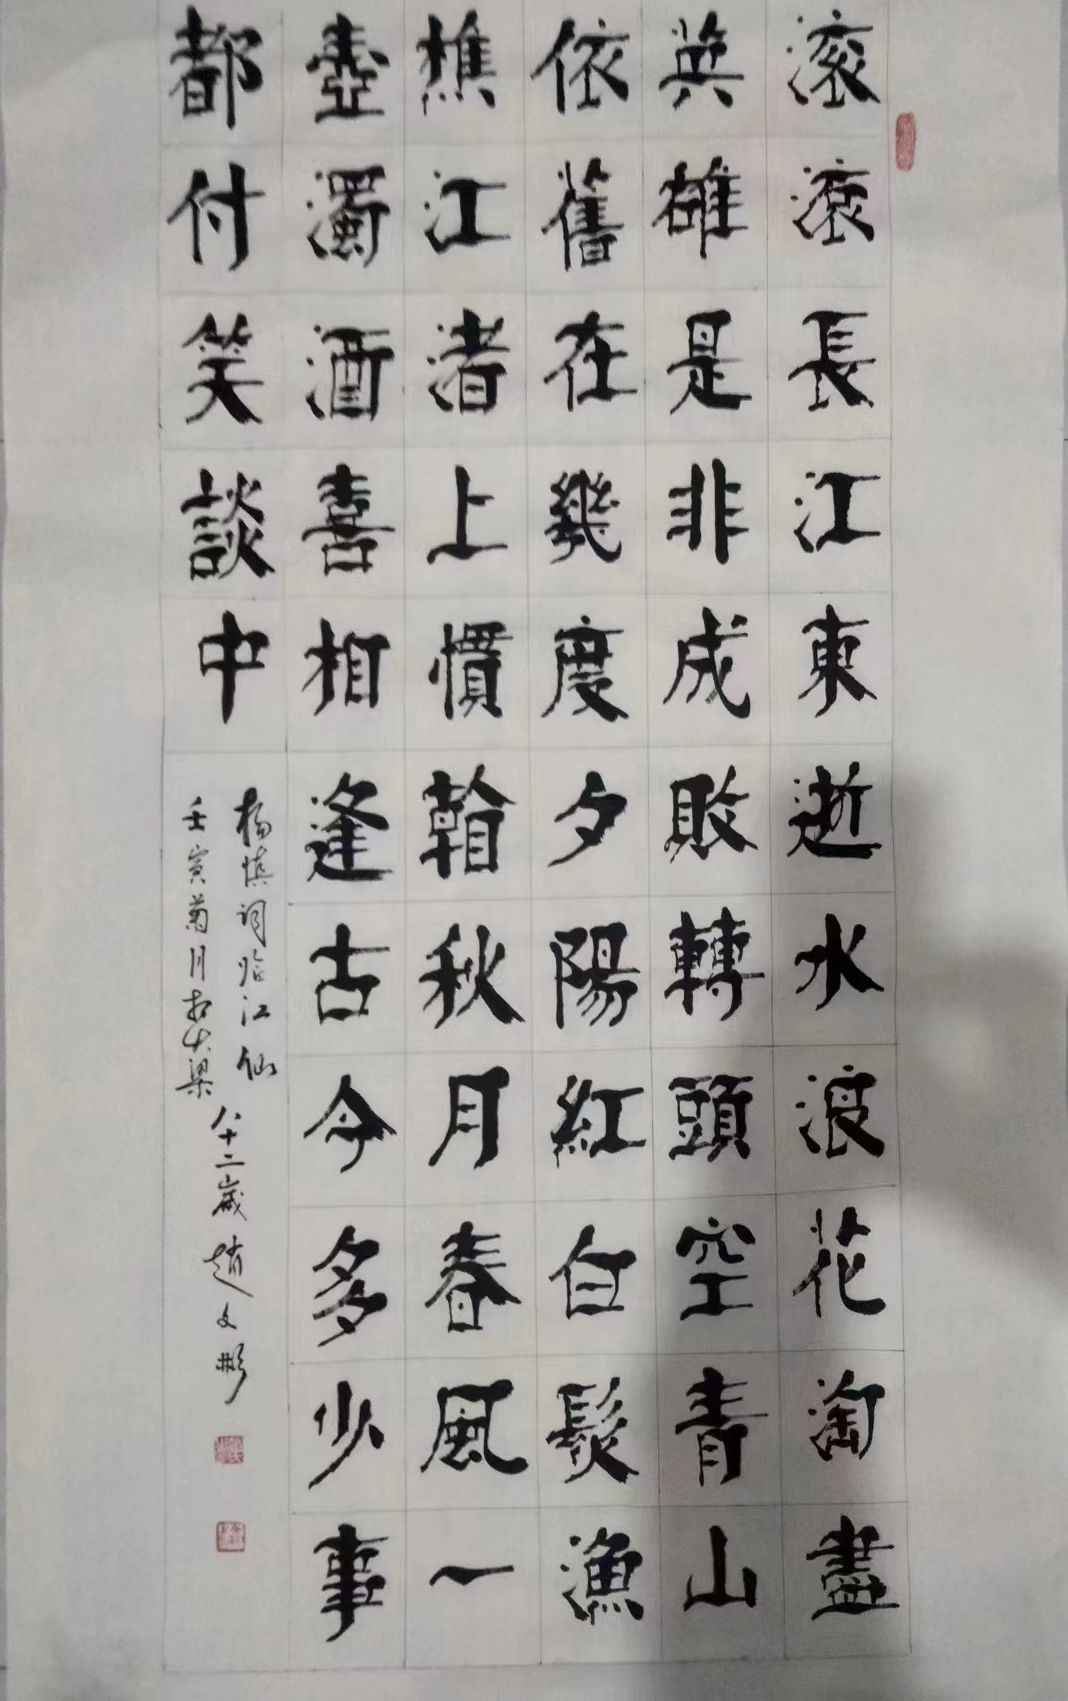 滚滚長江東逝水浪花淘盡
英雄是非成敗轉頭空青山
依舊在幾度夕陽紅白髮漁
樵江渚上慣看秋月春風一
壺濁酒喜相逢古今多少事
都付笑談中
楊慎詞临江仙
壬寅菊月於大梁
八十二歲趙文彬